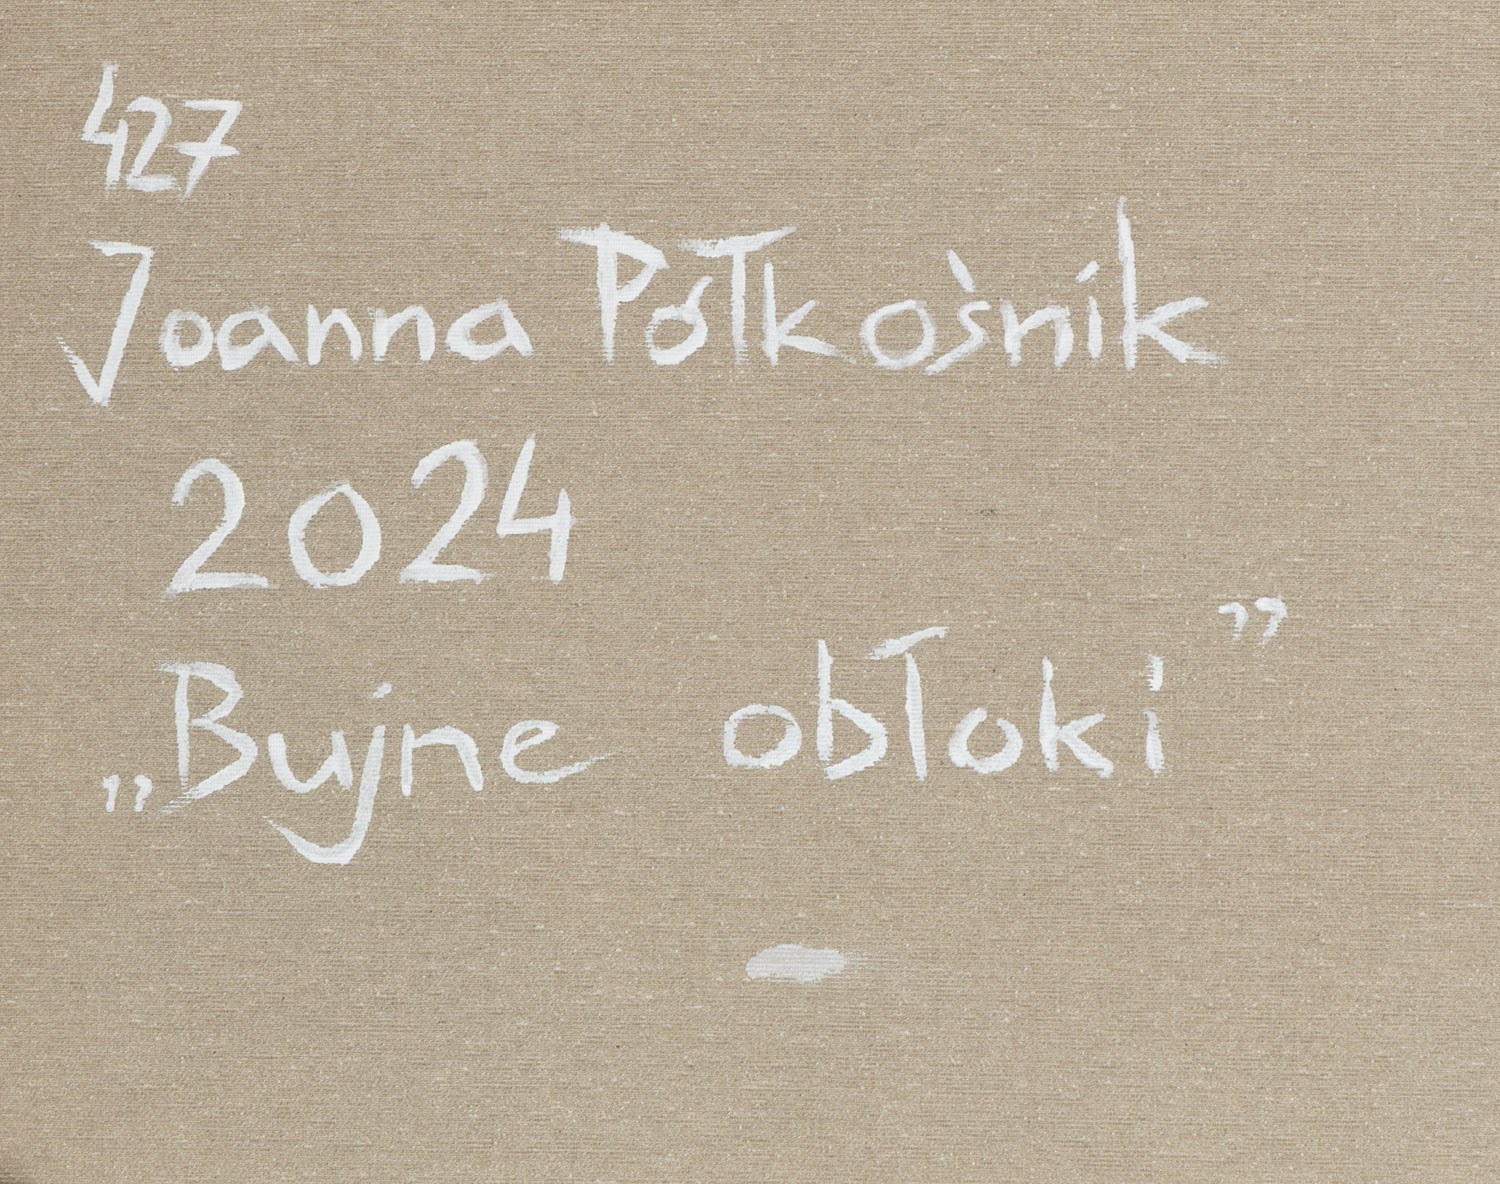 427
Joanna Półkośnik
2024
„Bujne obłoki”